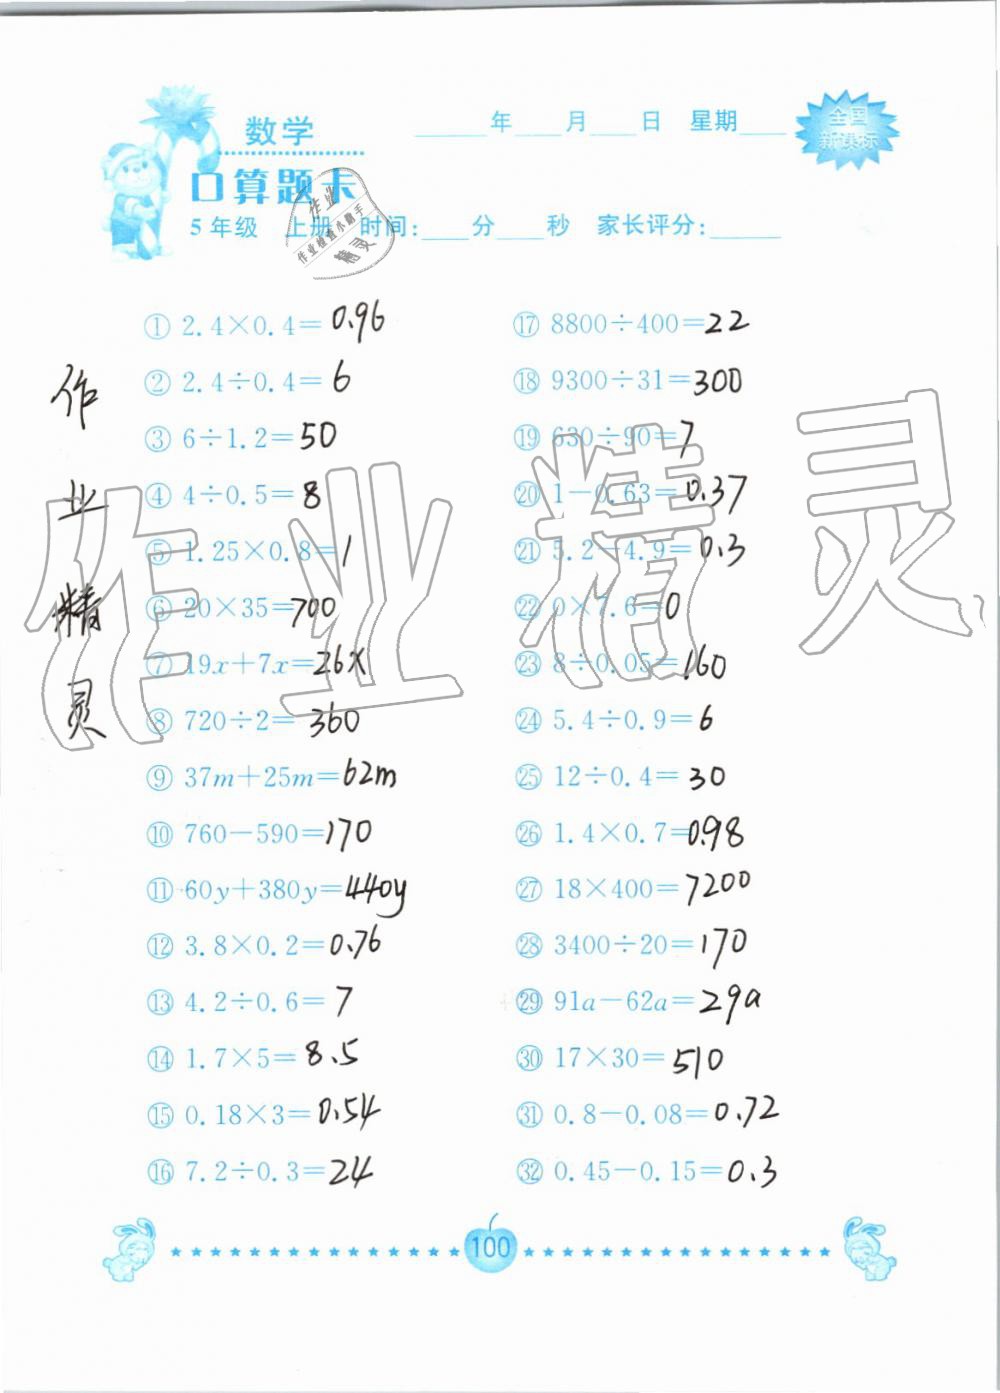 数学
口算题卡
____年____月____日 星期____
全国
新课标
5年级 上册 时间:____分____秒 家长评分:____
作业
作业检查小助手
精灵
① 2.4×0.4=0.96
② 2.4÷0.4=6
③ 6÷1.2=50
④ 4÷0.5=8
⑤ 1.25×0.8=1
⑥ 20×35=700
⑦ 19x+7x=26x
⑧ 720÷2=360
⑨ 37m+25m=62m
⑩ 760-590=170
⑪ 60y+380y=440y
⑫ 3.8×0.2=0.76
⑬ 4.2÷0.6=7
⑭ 1.7×5=8.5
⑮ 0.18×3=0.54
⑯ 7.2÷0.3=24
⑰ 8800÷400=22
⑱ 9300÷31=300
⑲ 630÷90=7
⑳ 1-0.63=0.37
㉑ 5.2-4.9=0.3
㉒ 0×7.6=0
㉓ 8÷0.05=160
㉔ 5.4÷0.9=6
㉕ 12÷0.4=30
㉖ 1.4×0.7=0.98
㉗ 18×400=7200
㉘ 3400÷20=170
㉙ 91a-62a=29a
㉚ 17×30=510
㉛ 0.8-0.08=0.72
㉜ 0.45-0.15=0.3
作业精灵
作业精灵
100